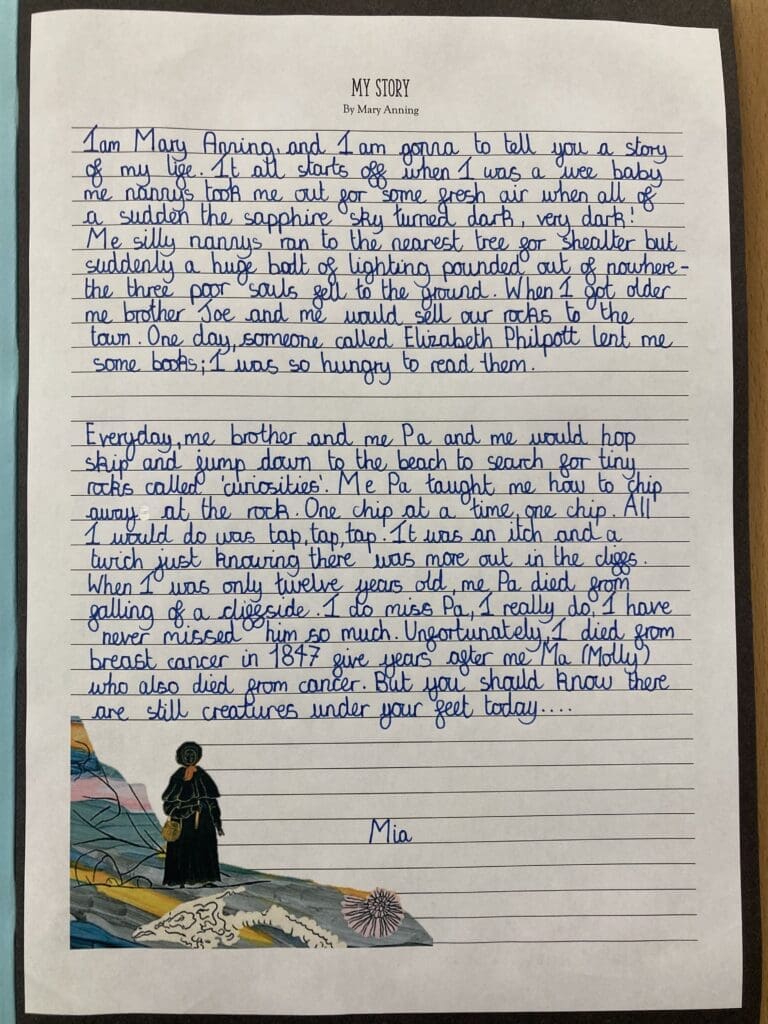 MY STORY
By Mary Anning
I am Mary Anning, and I am gonna to tell you a story
of my life. It all starts off when I was a wee baby
me nannys took me out for some fresh air when all of
a sudden the sapphire sky turned dark, very dark!
Me silly nannys ran to the nearest tree for shealter but
suddenly a huge bolt of lighting pounded out of nowhere-
the three poor souls fell to the ground. When I got older
me brother Joe and me would sell our rocks to the
town. One day, someone called Elizabeth Philpott lent me
some books; I was so hungry to read them.
Everyday, me brother and me Pa and me would hop
skip and jump down to the beach to search for tiny
rocks called 'curiosities'. Me Pa taught me how to chip
away at the rock. One chip at a time, one chip. All
I would do was tap, tap, tap. It was an itch and a
twich just knowing there was more out in the cliffs.
When I was only twelve years old, me Pa died from
falling of a cliffside. I do miss Pa, I really do, I have
never missed him so much. Unfortunately, I died from
breast cancer in 1847 five years after me Ma (Molly)
who also died from cancer. But you should know there
are still creatures under your feet today....
Mia